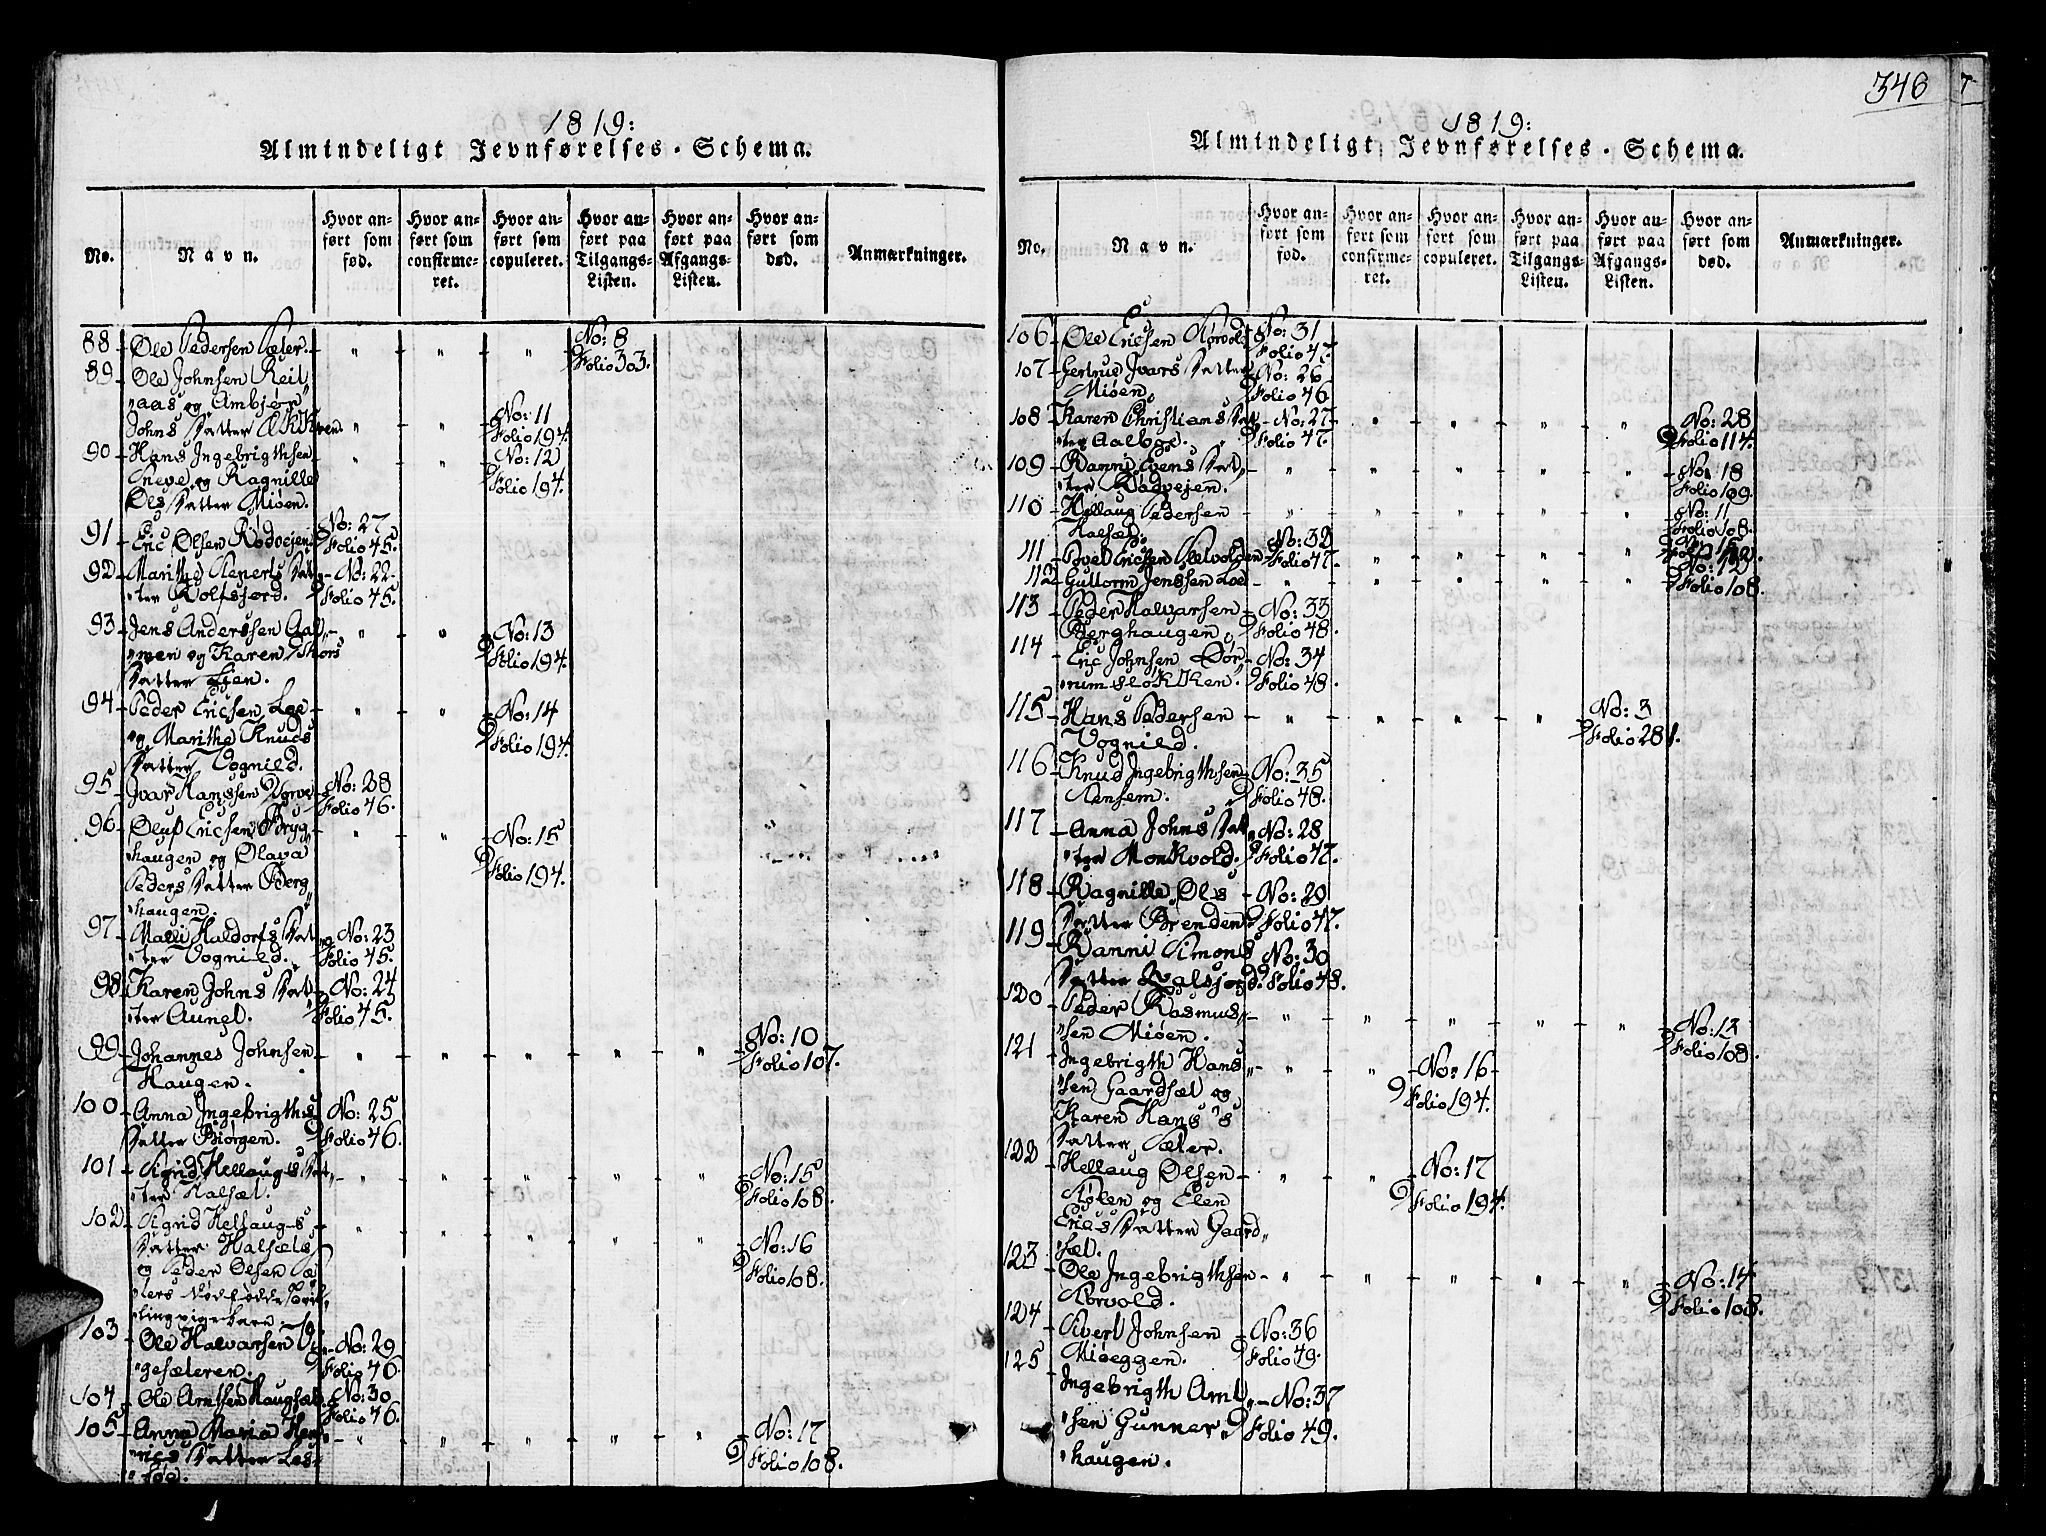 346
1819:
Almindeligt Jevnførelses-Schema.
No.
Navn.
Hvor anført som fød.
Hvor anført som confirmeret.
Hvor anført som copuleret.
Hvor anført paa Tilgangs-Listen.
Hvor anført paa Afgangs-Listen.
Hvor anført som død.
Anmærkninger.
88 Ole Pedersen Sæter. No: 8
Folio 33.
89 Ole Johnsen Reit
aas og Ambjør
Johns Datter No: 11
Folio 194.
90 Hans Ingebrigthsen No: 12
og Ragnille Folio 194.
Ols Datter Miøen.
91 Eric Olsen Rødvejen No: 27
Folio 45.
92 Marithe Siverts Dat No: 22
ter Rolfsjord. Folio 45.
93 Jens Anderssen Aal No: 13
men og Karen Thors Folio 194.
Datter Lien.
94 Peder Ericsen Loe No: 14
og Marithe Knuds Folio 194.
Datter Vognild.
95 Ivar Hanssen No: 28
Folio 46.
96 Oluf Ericsen Bryg No: 15
haugen og Olava Folio 194.
Peders Datter Berg
haugen.
97 Mali Haldors Dat No: 23
ter Vognild. Folio 45.
98 Karen Johns Dat No: 24
ter Aunet. Folio 45.
99 Johannes Johnsen No: 10
Haugen. Folio 107.
100 Anna Ingebrigths No: 25
Datter Biørgen. Folio 46.
101 Sigrid Hellaugs Dat No: 15
ter Halsæt. Folio 108.
102 Sigrid Hellaugs
Datter Halsæts No: 16
og Peder Olsen Sæ Folio 108.
ters dødfødde
103 Ole Halvarsen No: 29
gesæteren. Folio 46.
104 Ole Arntsen Haugsæt No: 30
Folio 46.
105 Anna Maria Hen No: 17
rics Datter Les Folio 108.
søe.
1819:
Almindeligt Jevnførelses-Schema.
No.
Navn.
Hvor anført som fød.
Hvor anført som confirmeret.
Hvor anført som copuleret.
Hvor anført paa Tilgangs-Listen.
Hvor anført paa Afgangs-Listen.
Hvor anført som død.
Anmærkninger.
106 Ole Ericsen Sørvold No: 31
Folio 47.
107 Gertrue Ivars Datter No: 26
Miøen. Folio 46
108 Karen Christians Dat No: 27 No: 28
ter Aalboe. Folio 47. Folio 114.
109 Ranni Svens Dat No: 18
ter Rødvejen. Folio 109.
110 Hellaug Pedersen No: 11
Halsæt. Folio 108.
111 Povel Ericsen Sælvolden No: 32
Folio 47.
112 Guttorm Jenssen Loe No: 12
Folio 108.
113 Peder Halvarsen No: 33
Berghaugen. Folio 48.
114 Eric Johnsen Dør No: 34
rumsløkken. Folio 48.
115 Hans Pedersen No: 3
Vognild. Folio 281.
116 Knud Ingebrigthsen No: 35
Stensem. Folio 48.
117 Anna Johns Dat No: 28
ter Monkvold. Folio 47.
118 Ragnille Ols No: 29
Datter Brenden Folio 47.
119 Ranni Simons No: 30
Datter Folio 48.
120 Peder Rasmus No: 13
sen Miøen. Folio 108.
121 Ingebrigth Hans No: 16
sen Gaardsæt og Folio 194.
Karen Hans's
Datter Sæter.
122 Hellaug Olsen No: 17
Stølen og Elen Folio 194.
Erics Datter Gaard
sæt.
123 Ole Ingebrigthsen No: 14
Sørvold. Folio 108.
124 Sivert Johnsen No: 36
Miøeggen. Folio 49.
125 Ingebrigth Arnt No: 37
sen Gunner Folio 49.
haugen.